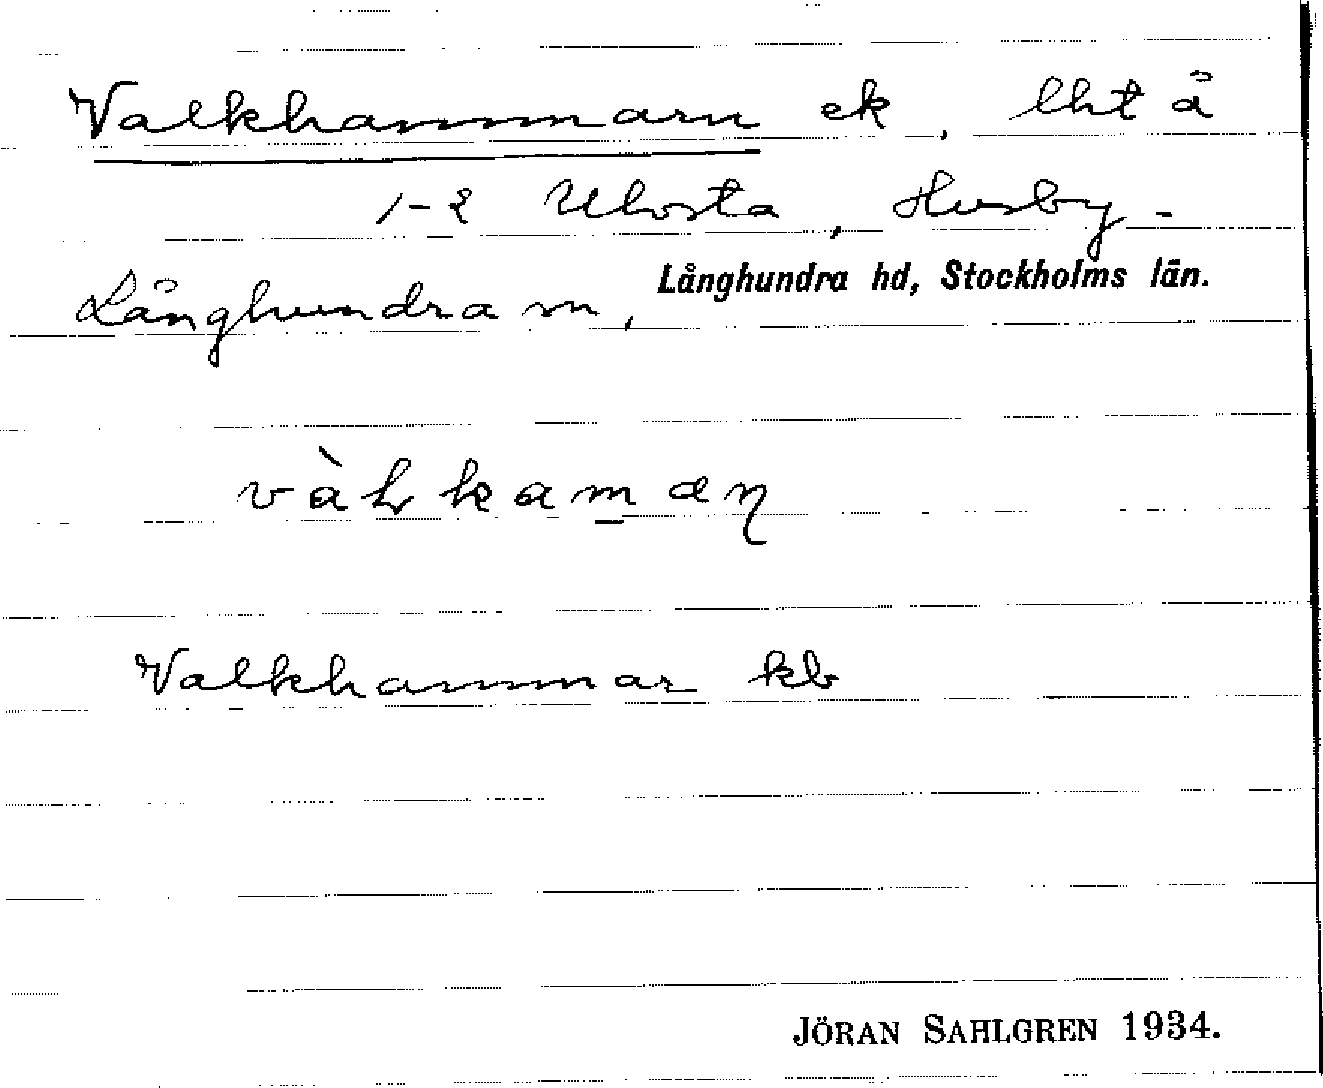 Valkhammarn ek, lht å
1-2 Ulvsta, Husby-
Långhundra sn, Långhundra hd, Stockholms län.
Valkhammar kb
JÖRAN SAHLGREN 1934.